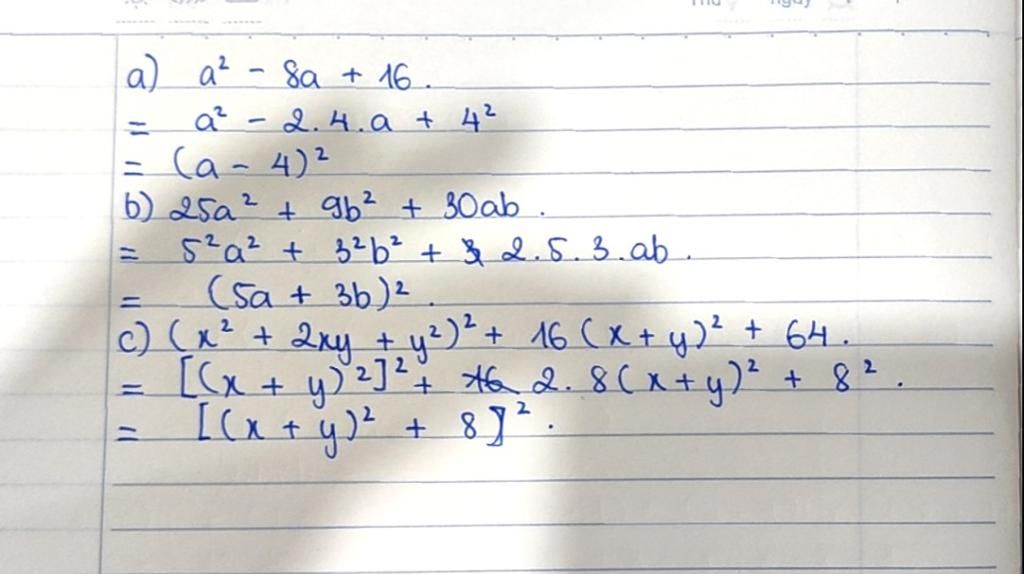 a) a² - 8a + 16.
= a² - 2.4.a + 4²
= (a - 4)²
b) 25a² + 9b² + 30ab.
= 5²a² + 3²b² + 2.5.3.ab.
= (5a + 3b)².
c) (x² + 2xy + y²)² + 16(x+y)² + 64.
= [(x + y)²]² + 2.8(x+y)² + 8².
= [(x + y)² + 8]².